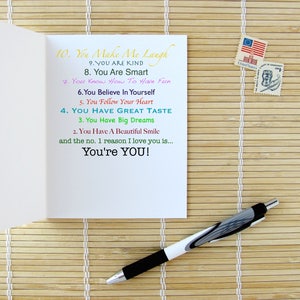 10. You Make Me Laugh
9. YOU ARE KIND
8. You Are Smart
7. You Know How To Have Fun
6. You Believe In Yourself
5. You Follow Your Heart
4. You Have Great Taste
3. You Have Big Dreams
2. You Have A Beautiful Smile
and the no. 1 reason I love you is...
You're YOU!